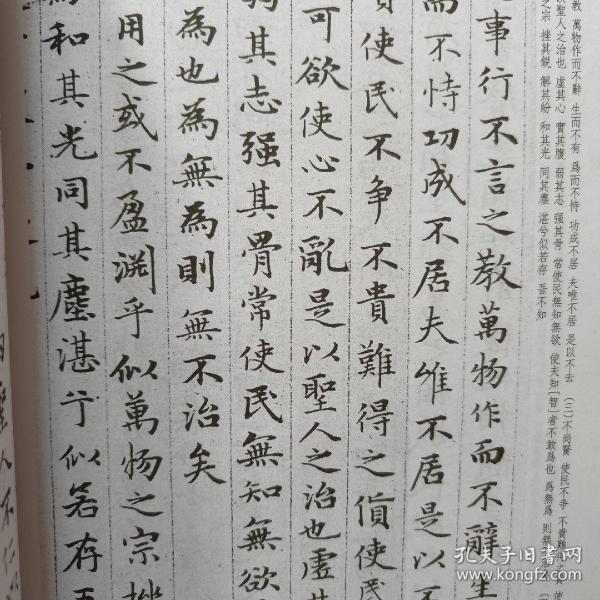 教 萬物作而不辭 生而不有 爲而不恃 功成不居 夫唯不居 是以不去 (三)不尚賢 使民不争 不貴難
聖人之治也 虚其心 實其腹 弱其志 强其骨 常使民無知無欲 使夫知[智]者不敢爲也 爲無爲 則無
之宗 挫其鋭 解其紛 和其光 同其塵 湛兮似若存 吾不知
事行不言之教萬物作而不辭生
而不恃功成不居夫唯不居是以不
使民不争不貴難得之貨使民
可欲使心不亂是以聖人之治也虚其
其志强其骨常使民無知無欲
為也為無為則無不治矣
用之或不盈渊乎似萬物之宗挫
和其光同其塵湛兮似若存吾
聖人不仁
孔夫子旧书网
www.kongfz.com